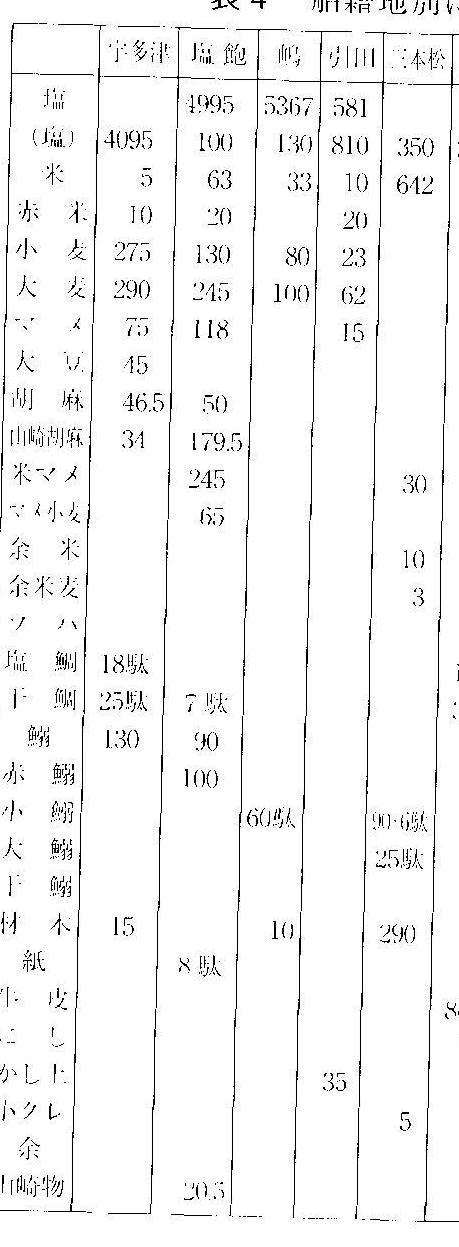 表4 船籍地別に
宇多津 塩飽 嶋 引田 三本松
塩 4995 5367 581
(塩) 4095 100 130 810 350
米 5 63 33 10 642
赤米 10 20 20
小麦 275 130 80 23
大麦 290 245 100 62
マメ 75 118 15
大豆 45
胡麻 46.5 50
山崎胡麻 34 179.5
米マメ 245 30
マメ小麦 65
余米 10
余米麦 3
ソハ
塩鯛 18駄
干鯛 25駄 7駄
鰯 130 90
赤鰯 100
小鰯 60駄 90・6駄
大鰯 25駄
干鰯
材木 15 10 290
紙 8駄
牛皮
にし
かし土 35
小クレ 5
余
山崎物 20.5